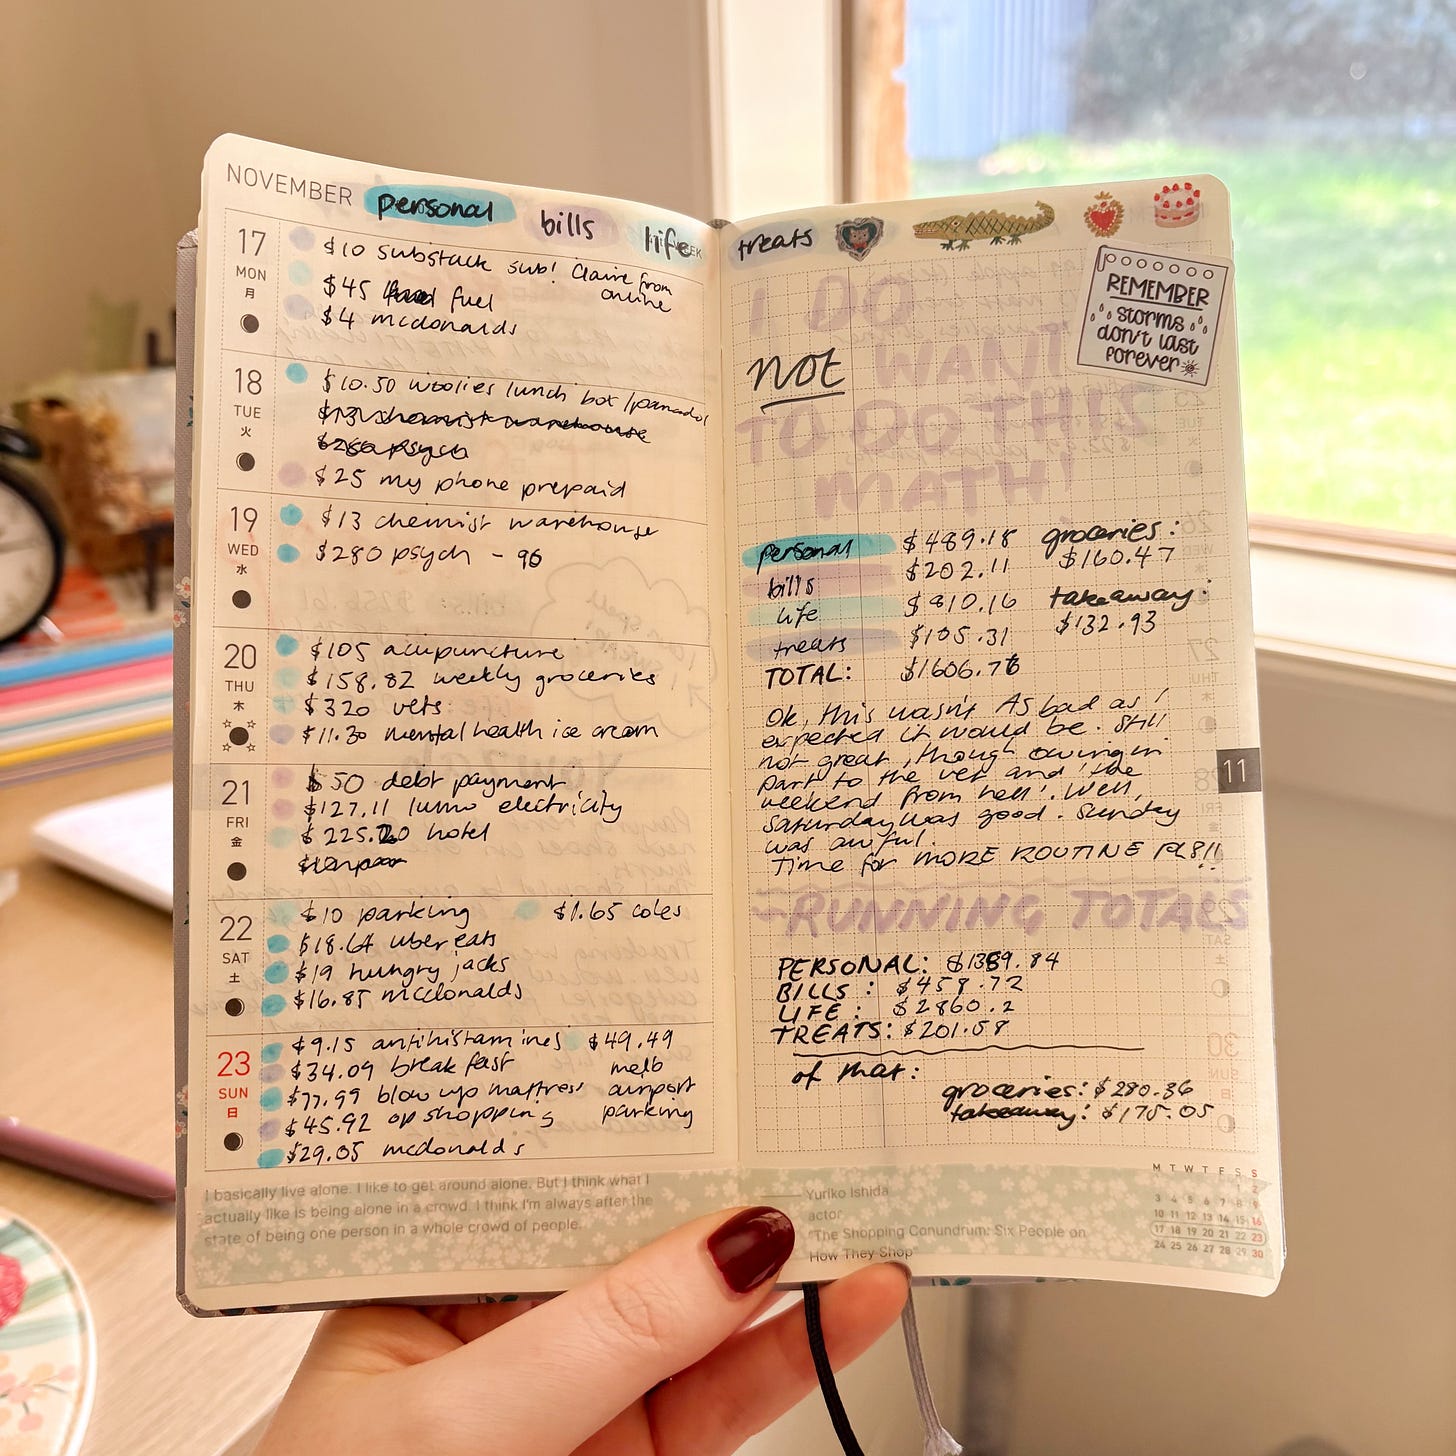 NOVEMBER personal bills life
17
MON
月
$10 substack sub! Claire from
online
$45 fuel
$4 mcdonalds
18
TUE
火
$10.50 woolies lunch box/panadol
$13 chemist warehouse
$280 psych
$25 my phone prepaid
19
WED
水
$13 chemist warehouse
$280 psych - 96
20
THU
木
$105 acupuncture
$158.82 weekly groceries
$320 vets
$11.30 mental health ice cream
21
FRI
金
$50 debt payment
$127.11 lumo electricity
$225.20 hotel
22
SAT
土
$10 parking $1.65 coles
$18.64 uber eats
$19 hungry jacks
$16.85 mcdonalds
23
SUN
日
$9.15 antihistamines $49.49
$34.09 breakfast melb
$77.99 blow up mattress airport
$45.92 op shopping parking
$29.05 mcdonalds
I basically live alone. I like to get around alone. But I think what I
actually like is being alone in a crowd. I think I'm always after the
state of being one person in a whole crowd of people.
treats
REMEMBER
storms
don't last
forever
I DO
not WANT
TO DO THIS
MATH!
personal $489.18
bills $202.11
life $810.16
treats $105.31
TOTAL: $1606.76
groceries:
$160.47
takeaway:
$132.93
Ok, this wasn't AS bad as I
expected it would be. Still
not great, though owing in
part to the vet and 'the
weekend from hell'. Well,
Saturday was good. Sunday
was awful.
Time for MORE ROUTINE PLS!!
11
RUNNING TOTALS
PERSONAL: $1389.84
BILLS: $458.72
LIFE: $2860.2
TREATS: $201.58
of that:
groceries: $280.36
takeaway: $175.05
Yuriko Ishida
actor
"The Shopping Conundrum: Six People on
How They Shop"
M T W T F S S
1 2
3 4 5 6 7 8 9
10 11 12 13 14 15 16
17 18 19 20 21 22 23
24 25 26 27 28 29 30